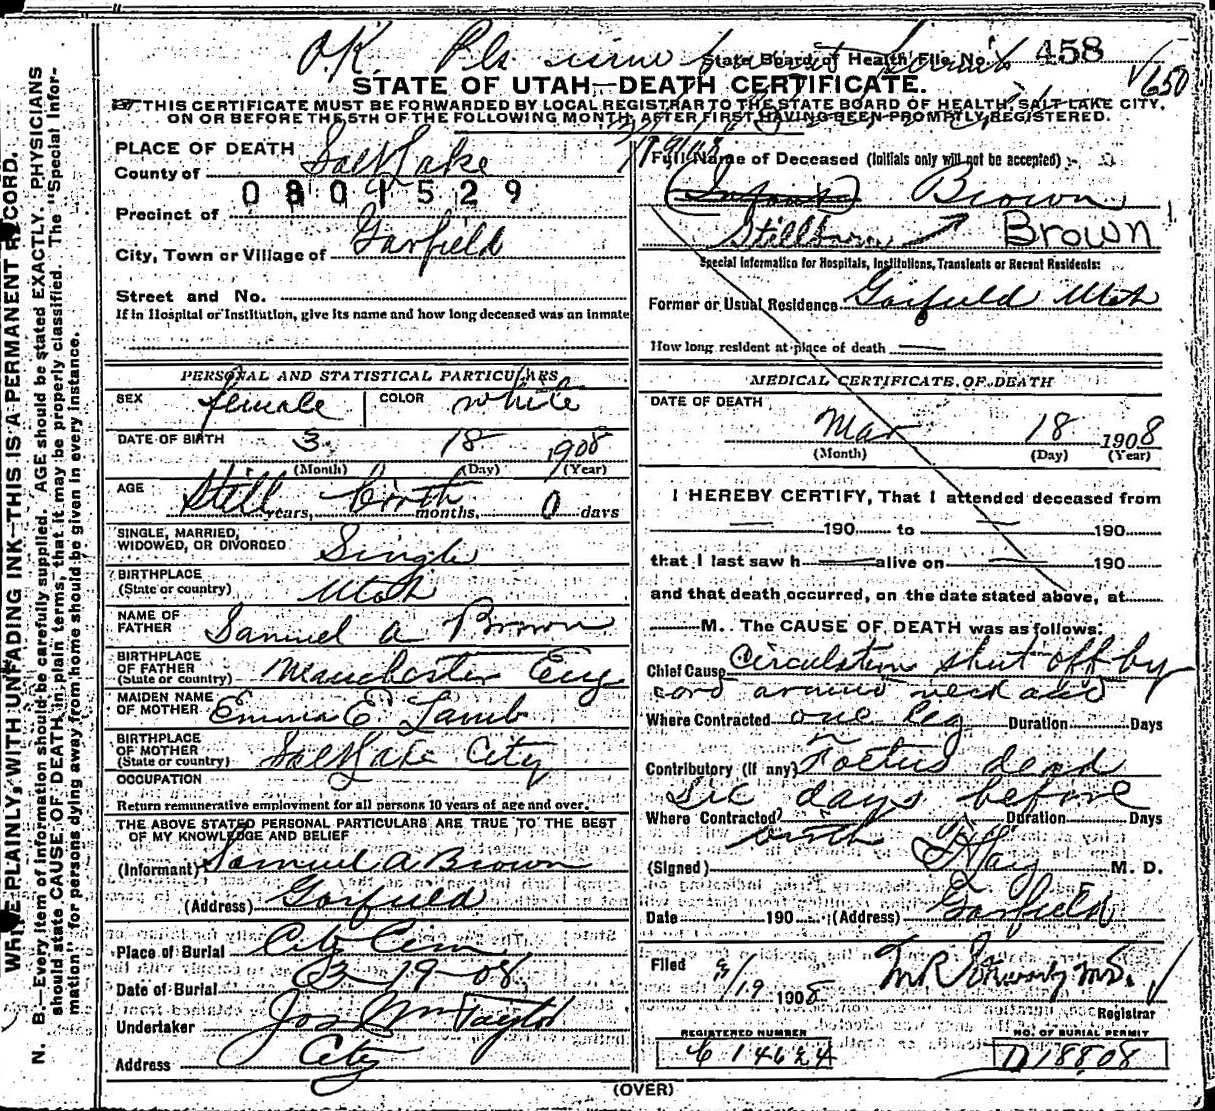 O.K. Pls
State Board of Health File No. 458
STATE OF UTAH—DEATH CERTIFICATE.
1650
THIS CERTIFICATE MUST BE FORWARDED BY LOCAL REGISTRAR TO THE STATE BOARD OF HEALTH, SALT LAKE CITY,
ON OR BEFORE THE 5TH OF THE FOLLOWING MONTH, AFTER FIRST HAVING BEEN PROMPTLY REGISTERED.
PLACE OF DEATH
County of Salt Lake
0801529
Precinct of
City, Town or Village of Garfield
Street and No.
If in Hospital or Institution, give its name and how long deceased was an inmate
PERSONAL AND STATISTICAL PARTICULARS
SEX female COLOR white
DATE OF BIRTH 3 18 1908
(Month) (Day) (Year)
AGE Still years, birth months, 0 days
SINGLE, MARRIED,
WIDOWED, OR DIVORCED Single
BIRTHPLACE
(State or country) Utah
NAME OF
FATHER Samuel A Brown
BIRTHPLACE
OF FATHER
(State or country) Manchester Eng
MAIDEN NAME
OF MOTHER Emma E Lamb
BIRTHPLACE
OF MOTHER
(State or country) Salt Lake City
OCCUPATION
Return remunerative employment for all persons 10 years of age and over.
THE ABOVE STATED PERSONAL PARTICULARS ARE TRUE TO THE BEST
OF MY KNOWLEDGE AND BELIEF
(Informant) Samuel A Brown
(Address) Garfield
Place of Burial City Cem
Date of Burial 3-19-08
Undertaker Jos Wm Taylor
Address City
Full Name of Deceased (Initials only will not be accepted)
(Infant) Brown
Stillborn Brown
Special Information for Hospitals, Institutions, Transients or Recent Residents:
Former or Usual Residence Garfield Utah
How long resident at place of death
MEDICAL CERTIFICATE OF DEATH
DATE OF DEATH
Mar 18 1908
(Month) (Day) (Year)
I HEREBY CERTIFY, That I attended deceased from
190 to 190
that I last saw h alive on 190
and that death occurred, on the date stated above, at
M. The CAUSE OF DEATH was as follows:
Chief Cause Circulation shut off by
cord around neck and
Where Contracted one leg Duration Days
Contributory (if any) Foetus dead
six days before
Where Contracted Duration Days
birth
(Signed) M. D.
Date 190 (Address) Garfield
Filed 3/19 1908
Registrar
REGISTERED NUMBER
NO. OF BURIAL PERMIT
D18808
(OVER)
N. B.—Every item of information should be carefully supplied. AGE should be stated EXACTLY. PHYSICIANS
should state CAUSE OF DEATH in plain terms, that it may be properly classified. The "Special Infor-
mation" for persons dying away from home should be given in every instance.
WRITE PLAINLY, WITH UNFADING INK—THIS IS A PERMANENT RECORD.